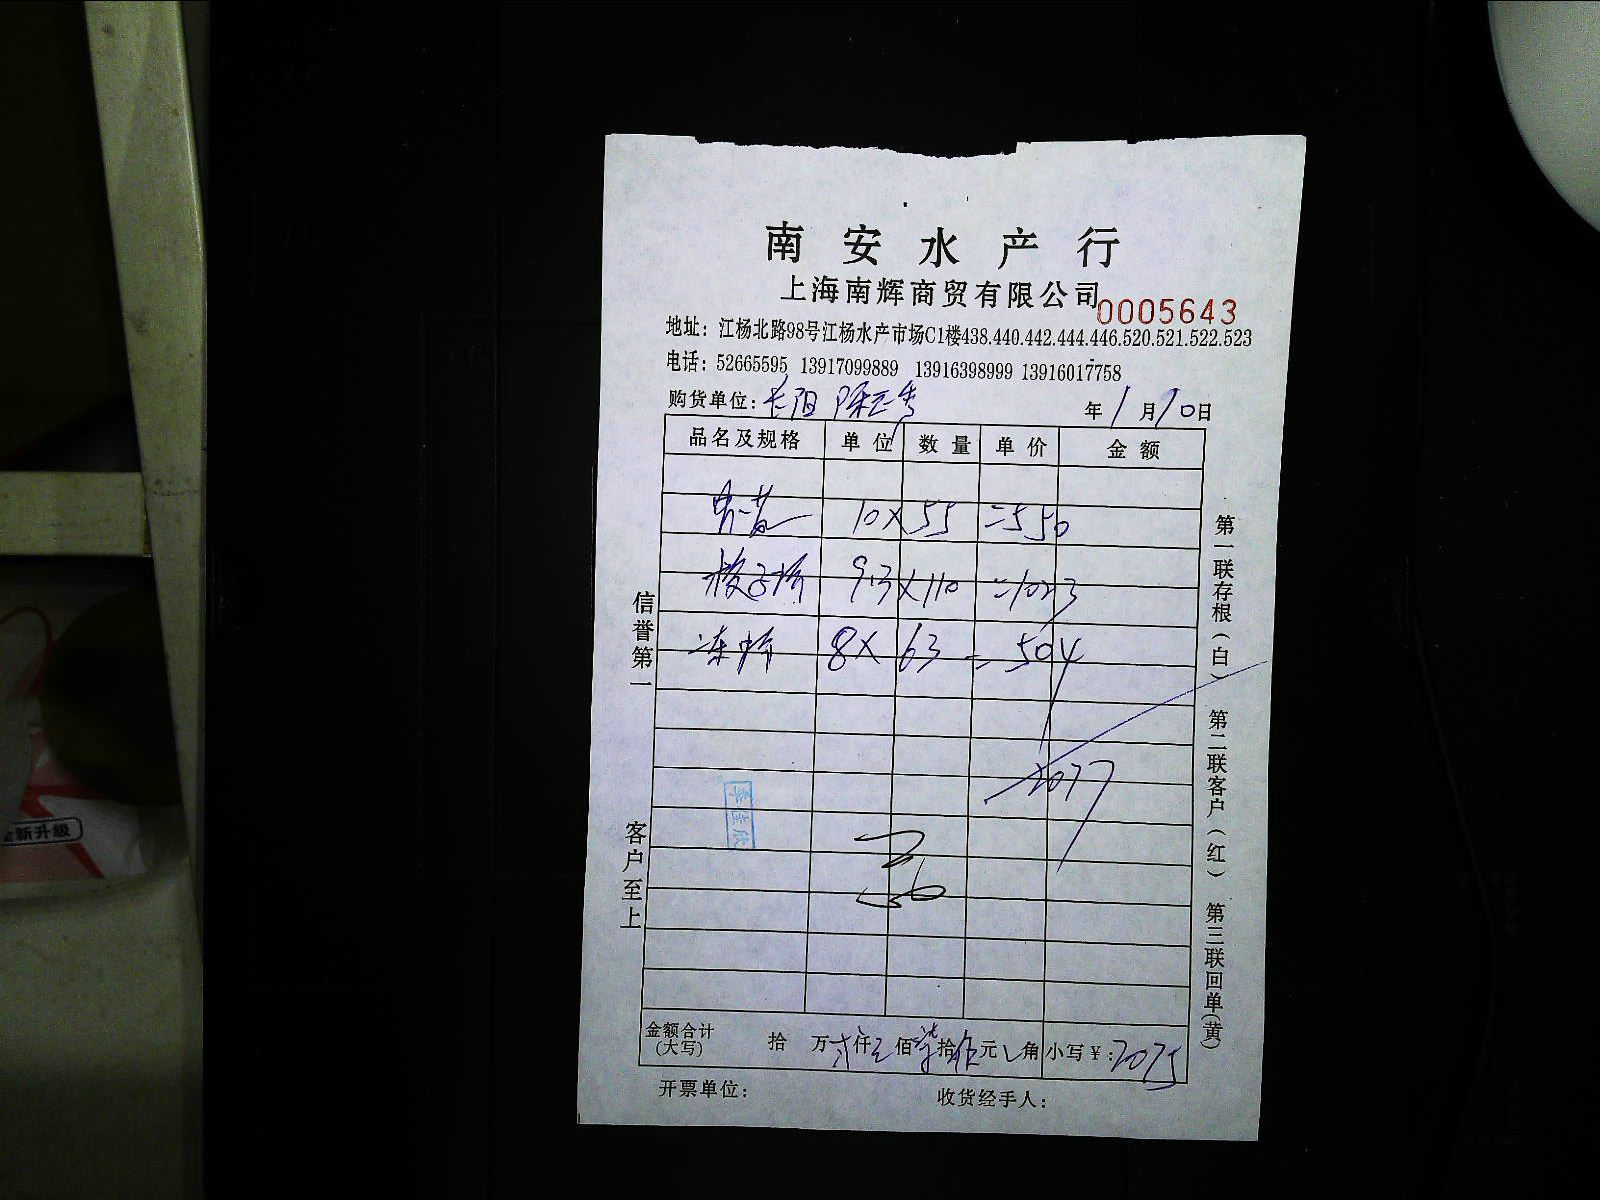 南安水产行
上海南辉商贸有限公司
0005643
地址：江杨北路98号江杨水产市场C1楼438.440.442.444.446.520.521.522.523
电话：52665595 13917099889 13916398999 13916017758
购货单位：长阳
年1月10日
品名及规格 单位 数量 单价 金额
10×55=550
9.3×110=1023
8×63=504
2077
金额合计(大写) 拾 万贰仟零佰柒拾伍元 角 小写¥:2075
开票单位： 收货经手人：
信誉第一
客户至上
第一联存根(白) 第二联客户(红) 第三联回单(黄)
新升级